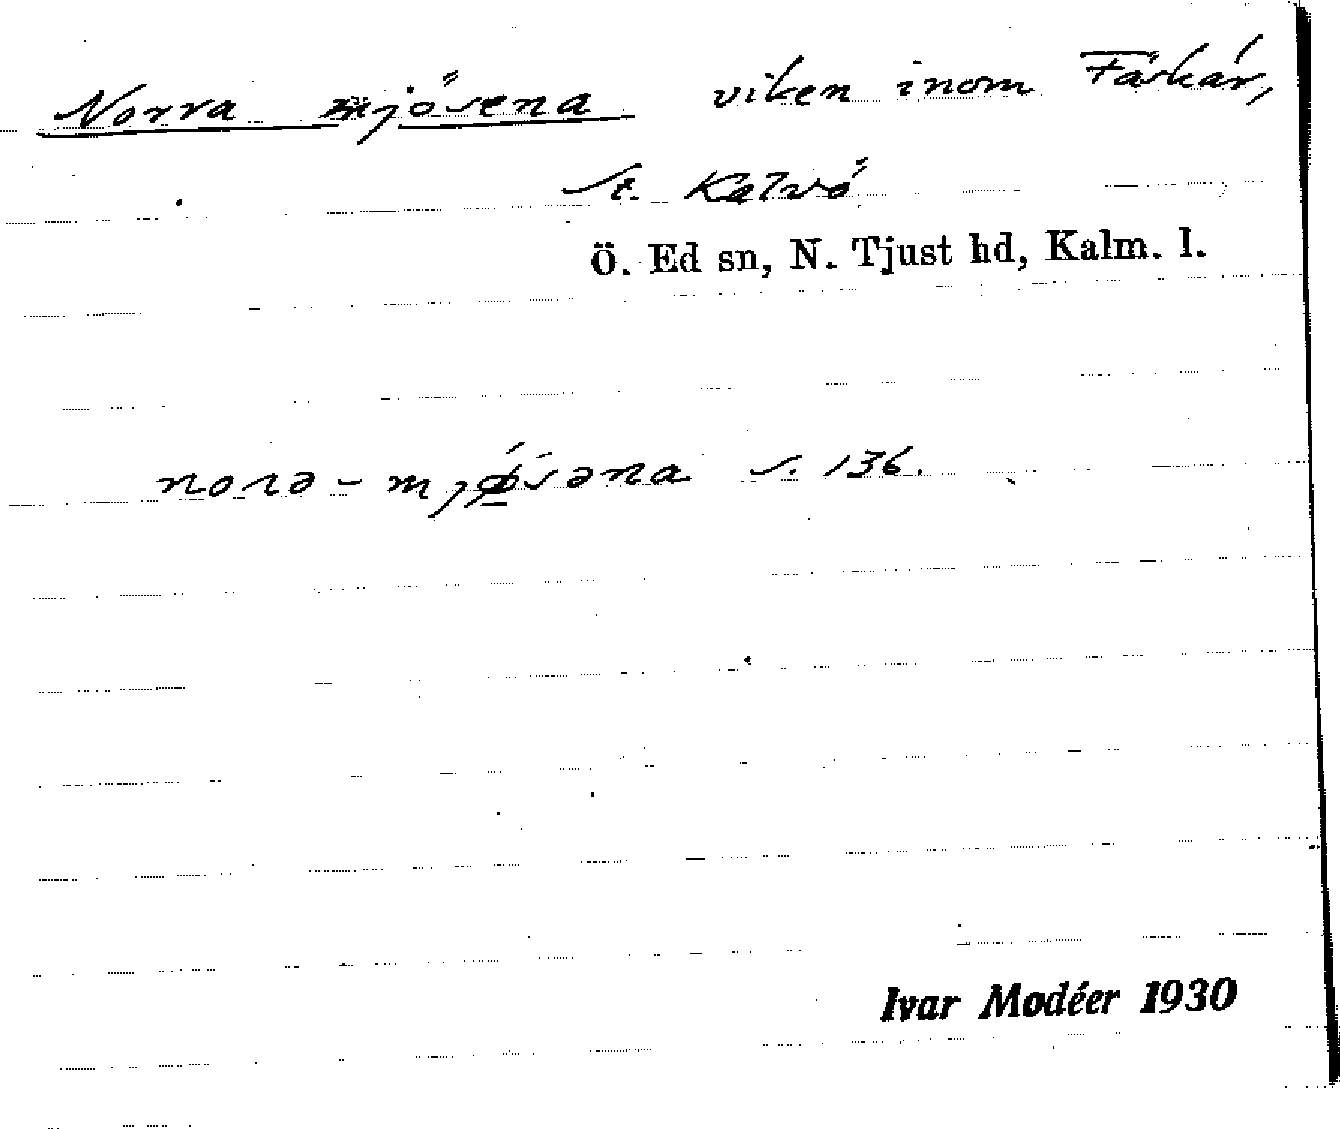 Norra mjösena viken inom Fåskär,
St. Kalvö
Ö. Ed sn, N. Tjust hd, Kalm. l.
norə-mjǿ̱səna s. 136.
Ivar Modéer 1930